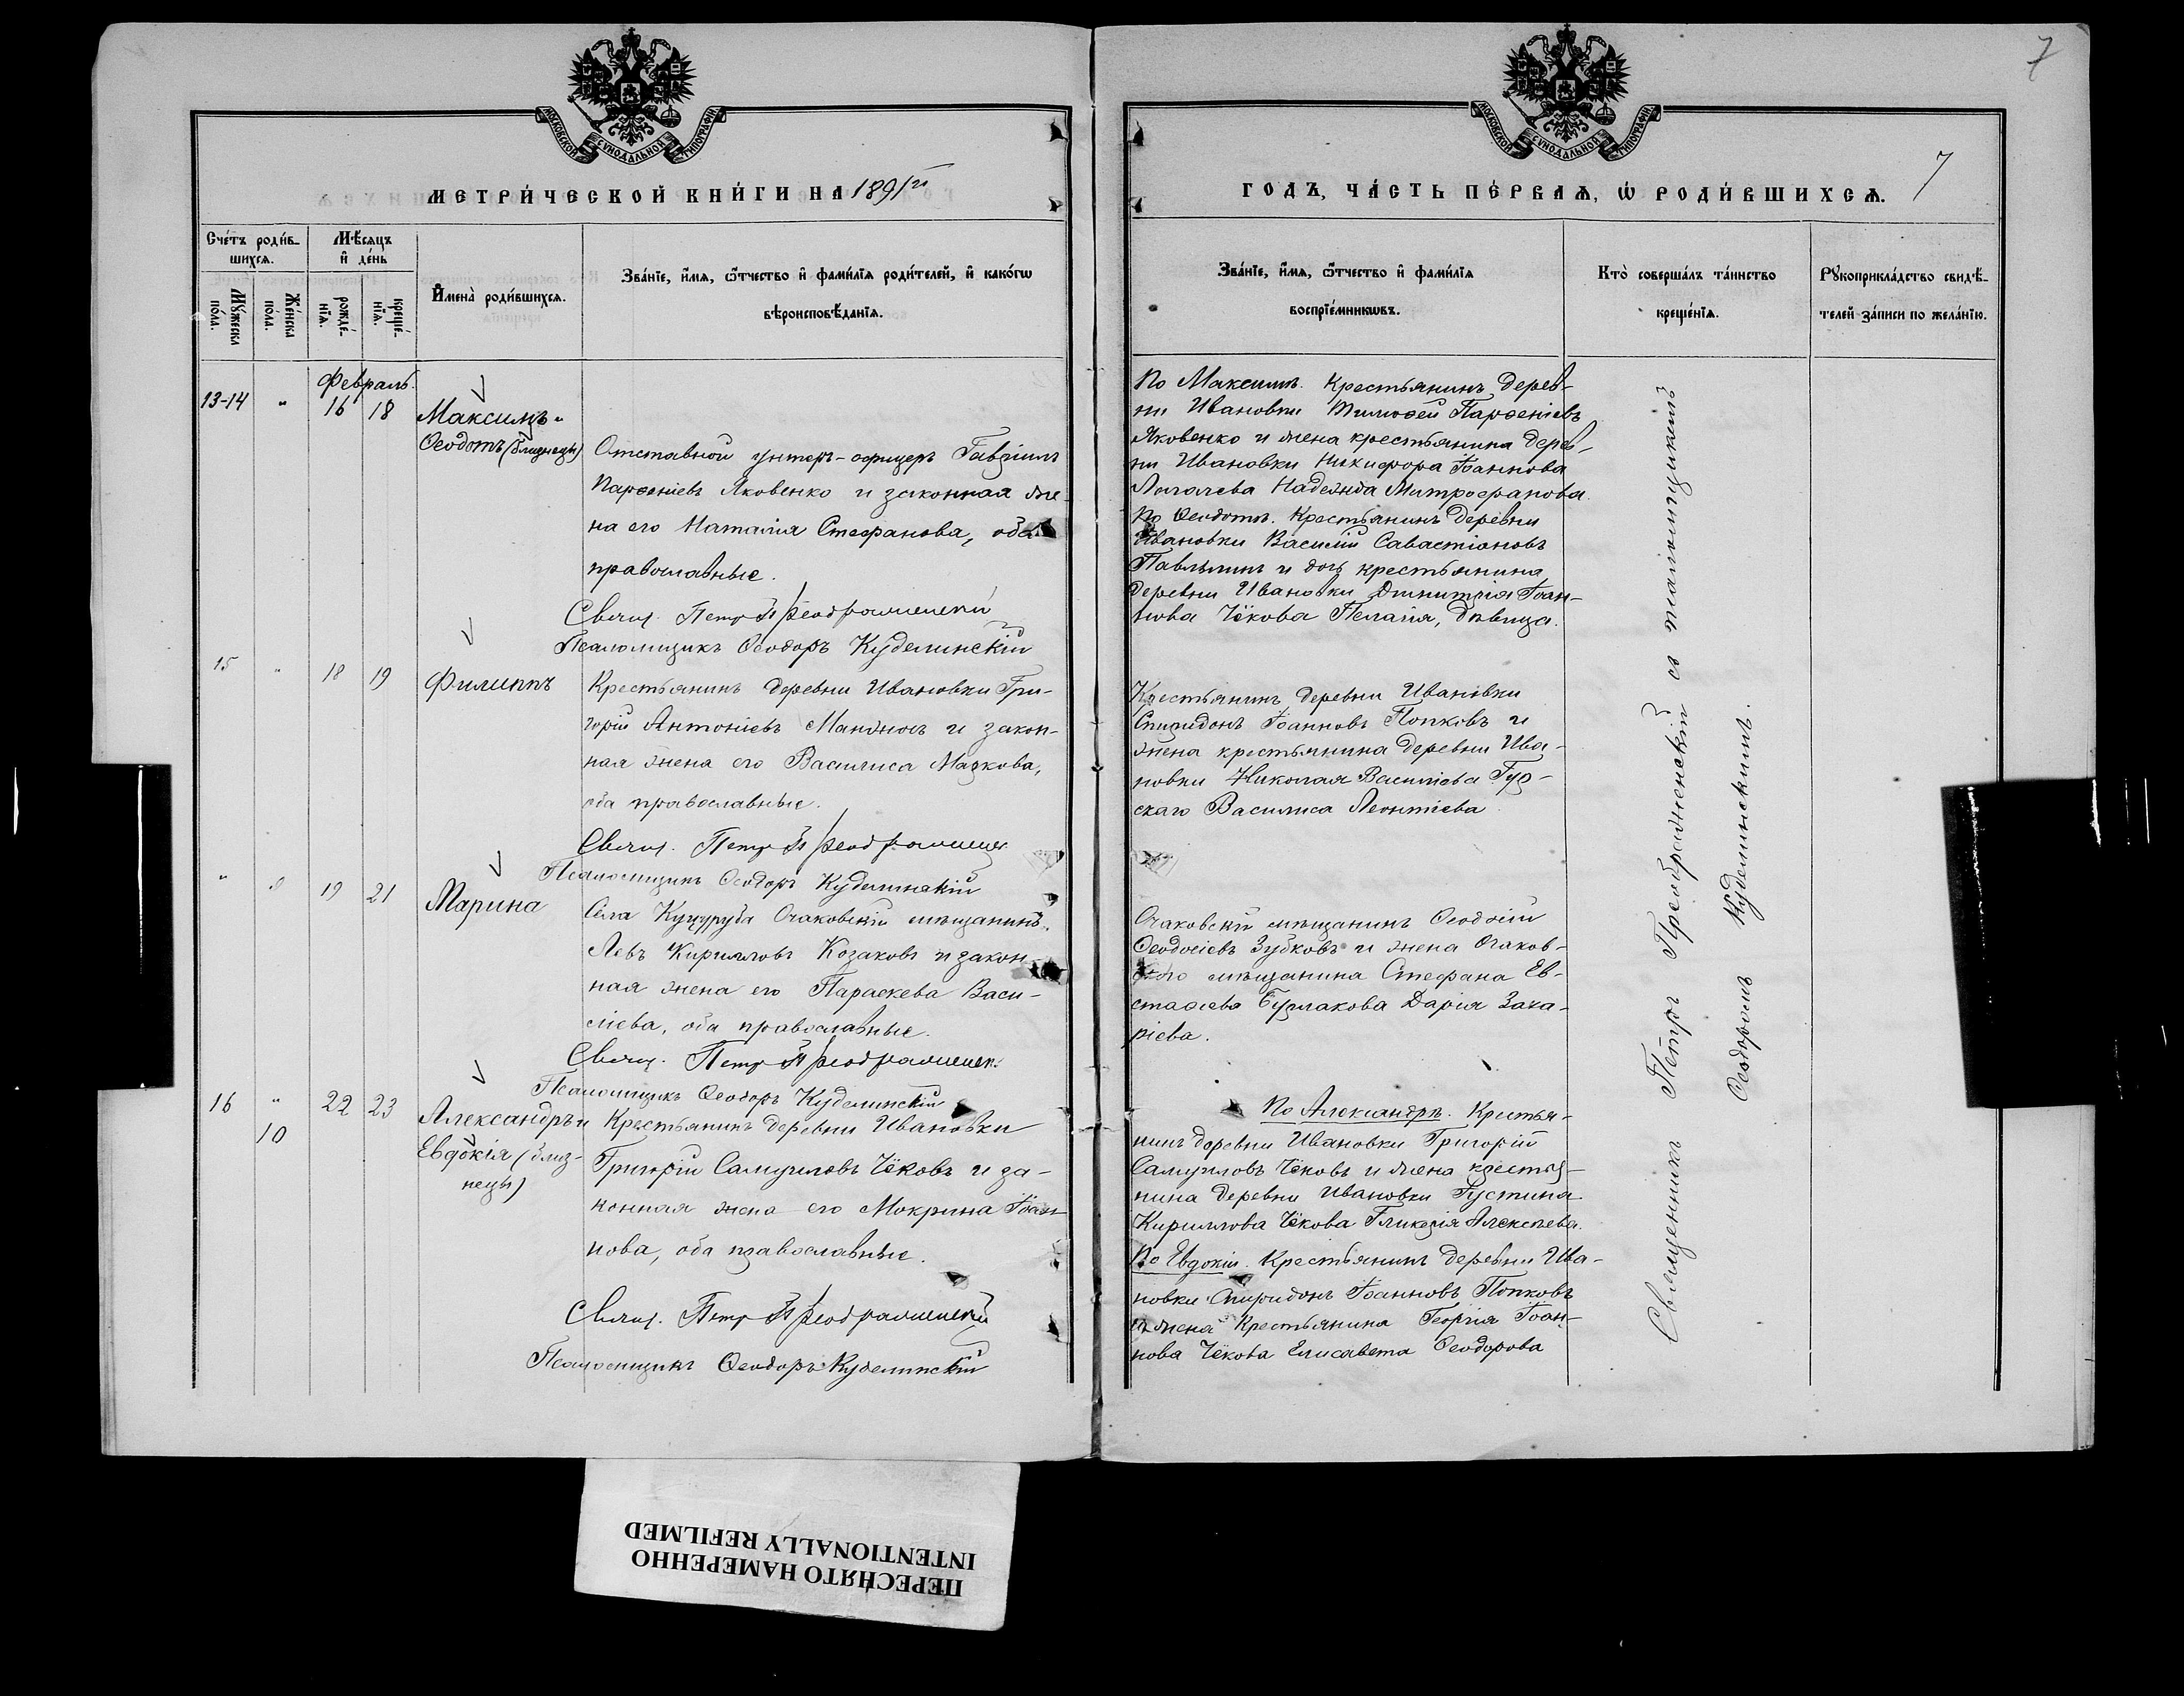 7
МОСКОВСКОЙ СѴНОДАЛЬНОЙ ТИПОГРАФІИ
МЕТРИ́ЧЕСКОЙ КНИ́ГИ НА 1891й
Сче́тъ роди́в-
шихсѧ.
Мꙋ́жеска по́ла.
Же́нска по́ла.
Мѣ́сѧцъ и҆ де́нь
рожде́-
нїѧ.
креще́-
нїѧ.
И҆мена̀ роди́вшихсѧ.
Зва́нїе, и҆́мѧ, ѻ҆́тчество и҆ фами́лїѧ роди́телей, и҆ како́гѡ
вѣроисповѣ́данїѧ.
Февраль.
13-14 " 16 18 Максимъ и
Ѳеодотъ (близнецы)
Отставной унтеръ-офицеръ Гавріилъ
Парѳеніевъ Яковенко и законная же-
на его Наталія Стефанова, оба
православные.
Свящ. Петръ Преображенскій
Псаломщикъ Ѳеодоръ Куделинскій
15 " 18 19 Филиппъ
Крестьянинъ деревни Ивановки Гри-
горій Антоніевъ и закон-
ная жена его Василиса Маркова,
оба православные.
Свящ. Петръ Преображенск
Псаломщикъ Ѳеодоръ Куделинскій
" 9 19 21 Марина
Села Куцуруба Очаковскій мѣщанинъ
Левъ Кирилловъ Козаковъ и закон-
ная жена его Параскева Васи-
ліева, оба православные.
Свящ. Петръ Преображенск
Псаломщикъ Ѳеодоръ Куделинскій
16 " 22 23 Александръ и
10 Евдокія (близ-
нецы)
Крестьянинъ деревни Ивановки
Григорій Самуиловъ Чёковъ и за-
конная жена его Мокрина Іоан-
нова, оба православные.
Свящ. Петръ Преображенскій
Псаломщикъ Ѳеодоръ Куделинскій
МОСКОВСКОЙ СѴНОДАЛЬНОЙ ТИПОГРАФІИ
7
ГОДЪ, ЧА́СТЬ ПЕ́РВАѦ, Ѡ҆ РОДИ́ВШИХСѦ.
Зва́нїе, и҆́мѧ, ѻ҆́тчество и҆ фами́лїѧ
воспрїе́мникѡвъ.
Кто̀ соверша́лъ та́инство
креще́нїѧ.
Рꙋкоприкла́дство свидѣ́-
телей за́писи по жела́нїю.
По Максимѣ. Крестьянинъ дерев-
ни Ивановки Тимоѳей Парѳеніевъ
Яковенко и жена крестьянина дерев-
ни Ивановки Никифора Іоаннова
Надежда Митрофанова.
По Ѳеодотѣ. Крестьянинъ деревни
Ивановки Василій Савастіановъ
и дочь крестьянина
деревни Ивановки Димитрія Іоан-
нова Чёкова Пелагія, дѣвица.
Крестьянинъ деревни Ивановки
Спиридонъ Іоанновъ Попковъ и
жена крестьянина деревни Ива-
новки Николая Василіева Гур-
скаго Василиса Леонтіева
Очаковскій мѣщанинъ Ѳеодосій
Ѳеодосіевъ Зубковъ и жена Очаков-
скаго мѣщанина Стефана Ев-
стаѳіева Бурлакова Дарія Заха-
ріева.
По Александрѣ. Крестья-
нинъ деревни Ивановки Григорій
Самуиловъ Чёковъ и жена крестья-
нина деревни Ивановки Іустина
Кириллова Чёкова Гликерія Алексѣева.
По Евдокіи. Крестьянинъ деревни Ива-
новки Спиридонъ Іоанновъ Попковъ
и жена Крестьянина Георгія Іоан-
нова Чёкова Елисавета Ѳеодорова
Священникъ Петръ Преображенскій съ псаломщикомъ
Ѳеодоромъ Куделинскимъ.
ПЕРЕСНЯТО НАМЕРЕННО
INTENTIONALLY REFILMED